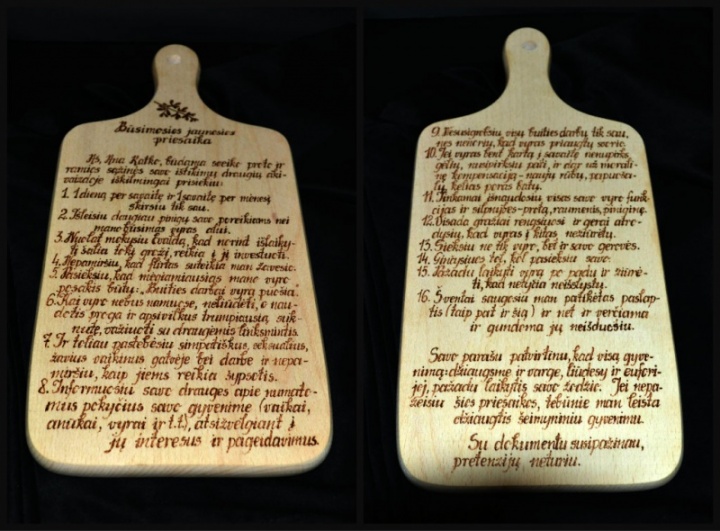 Būsimosios jaunosios
priesaika
Aš, Ana Ratke, būdama sveiko proto ir
ramios sąžinės savo ištikimų draugių aki-
vaizdoje iškilmingai prisiekiu:
1. 1 dieną per savaitę ir 1 savaitę per mėnesį
skirsiu tik sau.
2. Išleisiu daugiau pinigų savo poreikiams nei
mano būsimas vyras alui.
3. Nuolat mokysiu Evaldą, kad norint išlaiky-
ti šalia tokį grožį, reikia į jį investuoti.
4. Nepamiršiu, kad flirtas suteikia man žavesio.
5. Pasieksiu, kad mėgiamiausias mano vyro
posakis būtų: „Buities darbai vyrą puošia".
6. Kai vyro nebus namuose, neliūdėti, o nau-
dotis proga ir apsivilkus trumpiausią suk-
nutę, važiuoti su draugėmis linksmintis.
7. Ir toliau pastebėsiu simpatiškus, seksualius,
žavius vaikinus gatvėje bei darbe ir nepa-
miršiu, kaip jiems reikia šypsotis.
8. Informuosiu savo drauges apie numato-
mus pokyčius savo gyvenime (vaikai,
anūkai, vyrai ir t.t.), atsižvelgiant į
jų interesus ir pageidavimus.
9. Nesusigrobsiu visų buities darbų tik sau,
nes nenoriu, kad vyras priaugtų svorio.
10. Jei vyras bent kartą į savaitę nenupirks
gėlių, nusipirksiu pati, ir dar už morali-
nę kompensaciją - naujų rūbų, papuoša-
lų, kelias poras batų.
11. Tinkamai išnaudosiu visas savo vyro funk-
cijas ir silpnybes - protą, raumenis, piniginę.
12. Visada gražiai rengsiuosi ir gerai atro-
dysiu, kad vyras į kitas nežiūrėtų.
13. Sieksiu ne tik vyro, bet ir savo gerovės.
14. Ginčysiuos tol, kol pasieksiu savo.
15. Pažadu laikyti vyrą po padu ir žiūrė-
ti, kad netyčia neišslystų.
16. Šventai saugosiu man patikėtas paslap-
tis (taip pat ir šią) ir net ir verčiama
ir gundoma jų neišduosiu.
Savo parašu patvirtinu, kad visą gyve-
nimą: džiaugsme ir varge, liūdesy ir eufori-
joj, pažadu laikytis savo žodžio. Jei nepa-
žeisiu šios priesaikos, tebūnie man leista
džiaugtis šeimyniniu gyvenimu.
Su dokumentu susipažinau,
pretenzijų neturiu.